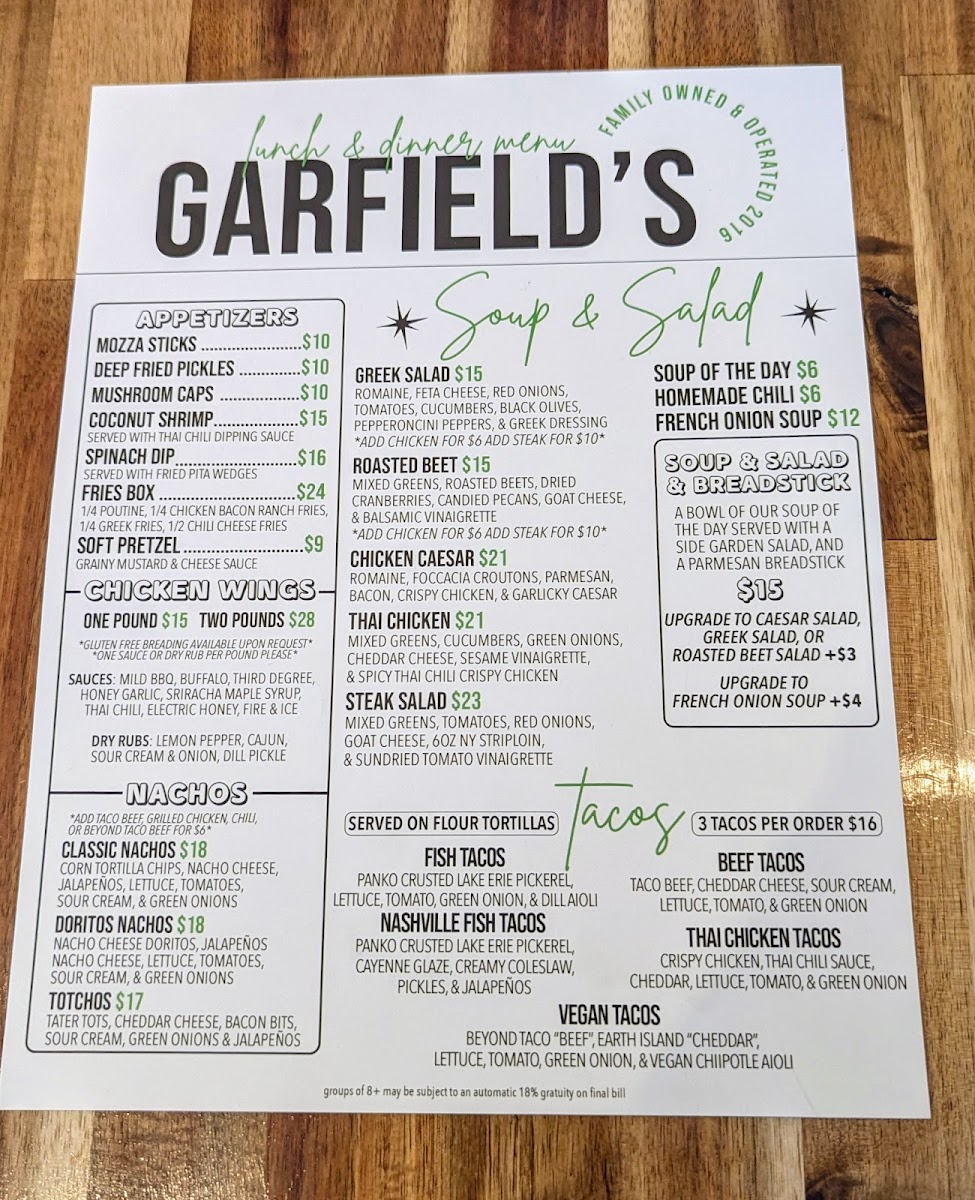 lunch & dinner menu
GARFIELD'S
FAMILY OWNED & OPERATED 2016
APPETIZERS
MOZZA STICKS .......................$10
DEEP FRIED PICKLES ..............$10
MUSHROOM CAPS ..................$10
COCONUT SHRIMP....................$15
SERVED WITH THAI CHILI DIPPING SAUCE
SPINACH DIP............................$16
SERVED WITH FRIED PITA WEDGES
FRIES BOX ...............................$24
1/4 POUTINE, 1/4 CHICKEN BACON RANCH FRIES,
1/4 GREEK FRIES, 1/2 CHILI CHEESE FRIES
SOFT PRETZEL............................$9
GRAINY MUSTARD & CHEESE SAUCE
CHICKEN WINGS
ONE POUND $15 TWO POUNDS $28
*GLUTEN FREE BREADING AVAILABLE UPON REQUEST*
*ONE SAUCE OR DRY RUB PER POUND PLEASE*
SAUCES: MILD BBQ, BUFFALO, THIRD DEGREE,
HONEY GARLIC, SRIRACHA MAPLE SYRUP,
THAI CHILI, ELECTRIC HONEY, FIRE & ICE
DRY RUBS: LEMON PEPPER, CAJUN,
SOUR CREAM & ONION, DILL PICKLE
NACHOS
*ADD TACO BEEF, GRILLED CHICKEN, CHILI,
OR BEYOND TACO BEEF FOR $6*
CLASSIC NACHOS $18
CORN TORTILLA CHIPS, NACHO CHEESE,
JALAPEÑOS, LETTUCE, TOMATOES,
SOUR CREAM, & GREEN ONIONS
DORITOS NACHOS $18
NACHO CHEESE DORITOS, JALAPEÑOS
NACHO CHEESE, LETTUCE, TOMATOES,
SOUR CREAM, & GREEN ONIONS
TOTCHOS $17
TATER TOTS, CHEDDAR CHEESE, BACON BITS,
SOUR CREAM, GREEN ONIONS & JALAPEÑOS
Soup & Salad
GREEK SALAD $15
ROMAINE, FETA CHEESE, RED ONIONS,
TOMATOES, CUCUMBERS, BLACK OLIVES,
PEPPERONCINI PEPPERS, & GREEK DRESSING
*ADD CHICKEN FOR $6 ADD STEAK FOR $10*
ROASTED BEET $15
MIXED GREENS, ROASTED BEETS, DRIED
CRANBERRIES, CANDIED PECANS, GOAT CHEESE,
& BALSAMIC VINAIGRETTE
*ADD CHICKEN FOR $6 ADD STEAK FOR $10*
CHICKEN CAESAR $21
ROMAINE, FOCCACIA CROUTONS, PARMESAN,
BACON, CRISPY CHICKEN, & GARLICKY CAESAR
THAI CHICKEN $21
MIXED GREENS, CUCUMBERS, GREEN ONIONS,
CHEDDAR CHEESE, SESAME VINAIGRETTE,
& SPICY THAI CHILI CRISPY CHICKEN
STEAK SALAD $23
MIXED GREENS, TOMATOES, RED ONIONS,
GOAT CHEESE, 6OZ NY STRIPLOIN,
& SUNDRIED TOMATO VINAIGRETTE
SOUP OF THE DAY $6
HOMEMADE CHILI $6
FRENCH ONION SOUP $12
SOUP & SALAD
& BREADSTICK
A BOWL OF OUR SOUP OF
THE DAY SERVED WITH A
SIDE GARDEN SALAD, AND
A PARMESAN BREADSTICK
$15
UPGRADE TO CAESAR SALAD,
GREEK SALAD, OR
ROASTED BEET SALAD +$3
UPGRADE TO
FRENCH ONION SOUP +$4
tacos
SERVED ON FLOUR TORTILLAS
3 TACOS PER ORDER $16
FISH TACOS
PANKO CRUSTED LAKE ERIE PICKEREL,
LETTUCE, TOMATO, GREEN ONION, & DILL AIOLI
NASHVILLE FISH TACOS
PANKO CRUSTED LAKE ERIE PICKEREL,
CAYENNE GLAZE, CREAMY COLESLAW,
PICKLES, & JALAPEÑOS
BEEF TACOS
TACO BEEF, CHEDDAR CHEESE, SOUR CREAM,
LETTUCE, TOMATO, & GREEN ONION
THAI CHICKEN TACOS
CRISPY CHICKEN, THAI CHILI SAUCE,
CHEDDAR, LETTUCE, TOMATO, & GREEN ONION
VEGAN TACOS
BEYOND TACO "BEEF", EARTH ISLAND "CHEDDAR",
LETTUCE, TOMATO, GREEN ONION, & VEGAN CHIIPOTLE AIOLI
groups of 8+ may be subject to an automatic 18% gratuity on final bill